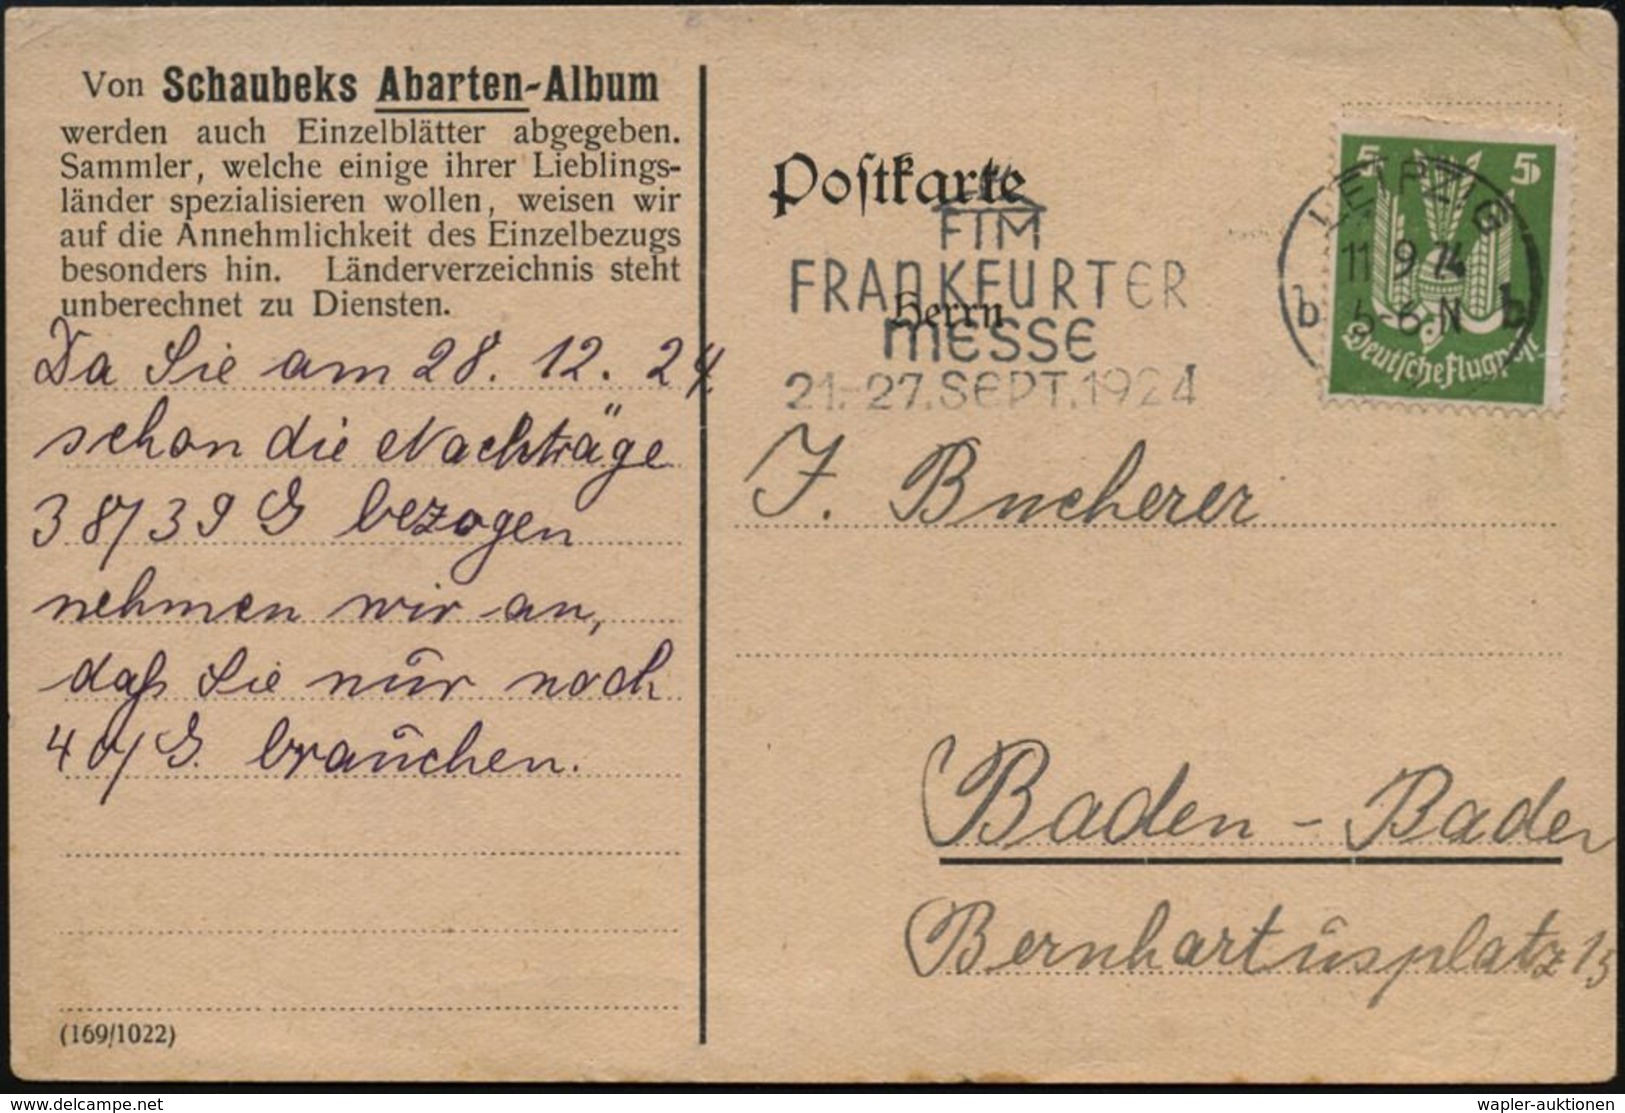 Von Schaubeks Abarten-Album
werden auch Einzelblätter abgegeben.
Sammler, welche einige ihrer Lieblings-
länder spezialisieren wollen, weisen wir
auf die Annehmlichkeit des Einzelbezugs
besonders hin. Länderverzeichnis steht
unberechnet zu Diensten.
Da Sie am 28. 12. 24.
schon die Nachträge
38/39 G bezogen
nehmen wir an,
daß Sie nur noch
40/G. brauchen.
(169/1022)
Postkarte
FIM
FRANKFURTER
MESSE
21.-27. SEPT. 1924
Herrn
LEIPZIG
11 9 24
b 5-6 N b
5 5
Deutsche Flugpost
J. Bucherer
Baden-Baden
Bernhartusplatz
delcampe.net
wapler-auktionen